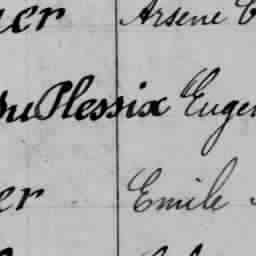 er Arsene
DuPlessix Eugen
er Emile